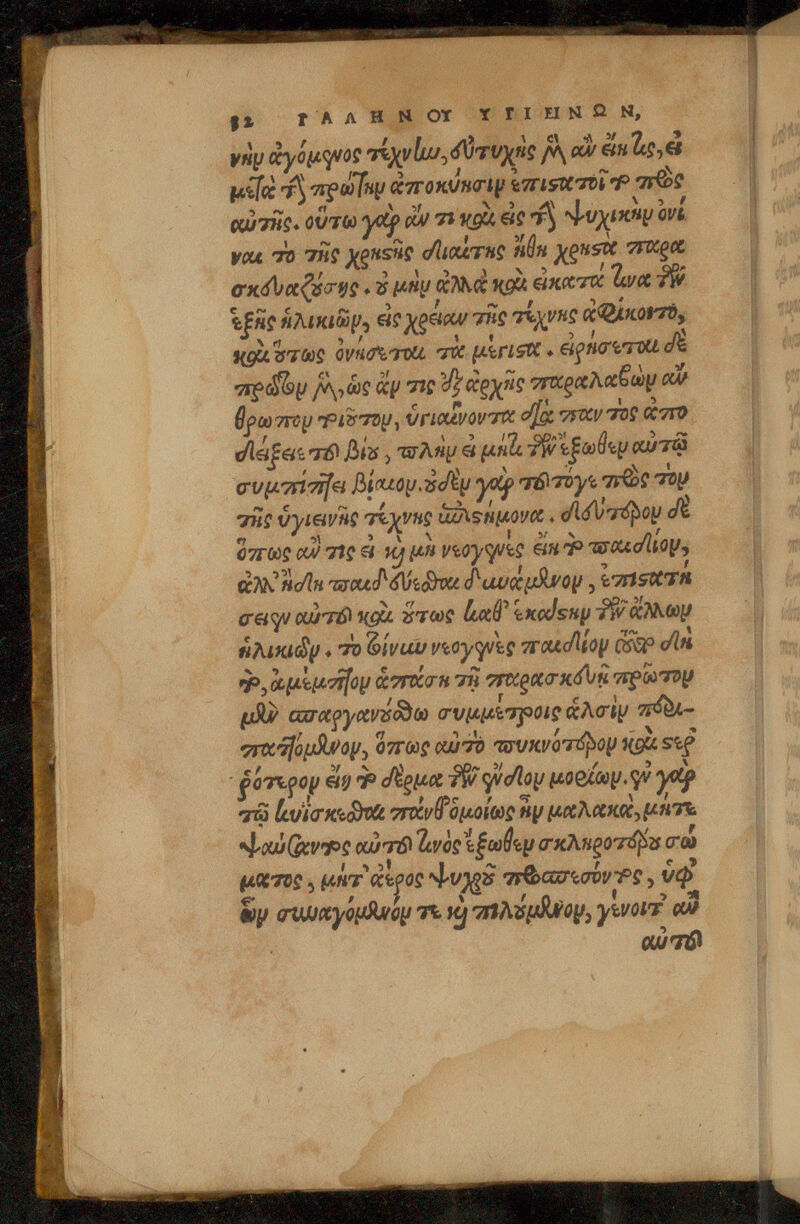 32 ΓΑΛΗΝΟΥ ΥΓΙΕΙΝΩΝ,
νὴν ἀγόμενος τέχνην, εὐτυχὴς μὲν ἂν εἴη τις, εἰ
μετὰ τὴν πρώτην ἀποκύησιν ἐπιστατοῖτο πρὸς
αὐτῆς. οὕτω γὰρ ἄν τι καὶ εἰς τὴν ψυχικὴν ὀνί
ναι τὸ τῆς χρηστῆς διαίτης ἤθη χρηστὰ παρα
σκευαζούσης. οὐ μὴν ἀλλὰ καὶ εἰ κατά τινα τῶν
ἑξῆς ἡλικιῶν, εἰς χρείαν τῆς τέχνης ἀφίκοντο,
καὶ οὕτως ὀνήσεται τὰ μέγιστα. εἰρήσεται δὲ
πρῶτον μὲν, ὡς ἄν τις ἐξ ἀρχῆς παραλαβὼν ἄν
θρωπον τοιοῦτον, ὑγιαίνοντα διὰ παντὸς ἀπο
δείξειε τοῦ βίου, πλὴν εἰ μή τι τῶν ἔξωθεν αὐτῷ
συμπίπτει βίαιον. οὐδὲν γὰρ τοῦτό γε πρὸς τὸν
τῆς ὑγιεινῆς τέχνης ἐπιστήμονα. δεύτερον δὲ
ὅπως ἄν τις εἰ καὶ μὴ νεογενὲς εἴη τὸ παιδίον,
ἀλλ' ἤδη παιδεύεσθαι δυνάμενον, ἐπιστατή
σειεν αὐτοῦ καὶ οὕτως καθ' ἑκάστην τῶν ἄλλων
ἡλικιῶν. τὸ τοίνυν νεογενὲς παιδίον τοῦτο δὴ
τὸ, ἄμεμπτον ἁπάσῃ τῇ παρασκευῇ πρῶτον
μὲν σπαργανούσθω συμμέτροις ἁλσὶν περι-
παττόμενον, ὅπως αὐτὸ πυκνότερον καὶ στερ
ρότερον εἴη τὸ δέρμα τῶν ἔνδον μορίων. ἐν γὰρ
τῷ κυΐσκεσθαι πάνθ' ὁμοίως ἦν μαλακὰ, μήτε
ψαύοντος αὐτοῦ τινὸς ἔξωθεν σκληροτέρου σώ
ματος, μήτ' ἀέρος ψυχροῦ προσπεσόντος, ὑφ'
ὧν συναγόμενόν τε καὶ πιλούμενον, γένοιτ' ἂν
αὐτοῦ